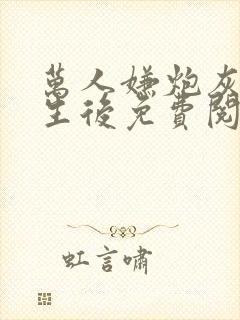 萬人嫌炮灰
生後免費閱
虹言嘯